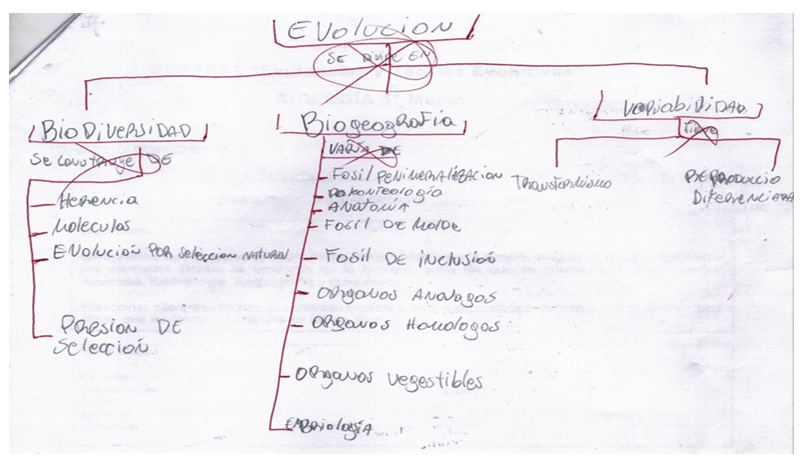 EVOLUCION
SE DIVIDE EN
BioDiVERSIDAD
Biogeografia
VariabiDiDAD
Se construye DE
VARIA DE
Tiene
Herencia
Moleculas
EVolución Por Seleccion NATURAL
PRESION DE
Selección
Fosil PeRiMeRaliZACION
PaLonteologia
ANATOMIA
Fosil De MolDe
Fosil DE inclusión
ORganos Analogos
ORganos Homologos
ORganos Vegestibles
EMBRiologiA
TRANSFORMismo
REPRODUCCIO
DiFerenciADA